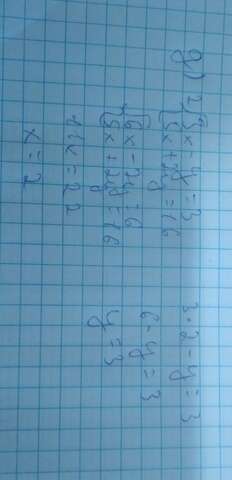 g) 2) { 3x - y = 3
{ 5x + 2y = 16
+ { 6x - 2y = 6
{ 5x + 2y = 16
11x = 22
x = 2
3·2 - y = 3
6 - y = 3
y = 3